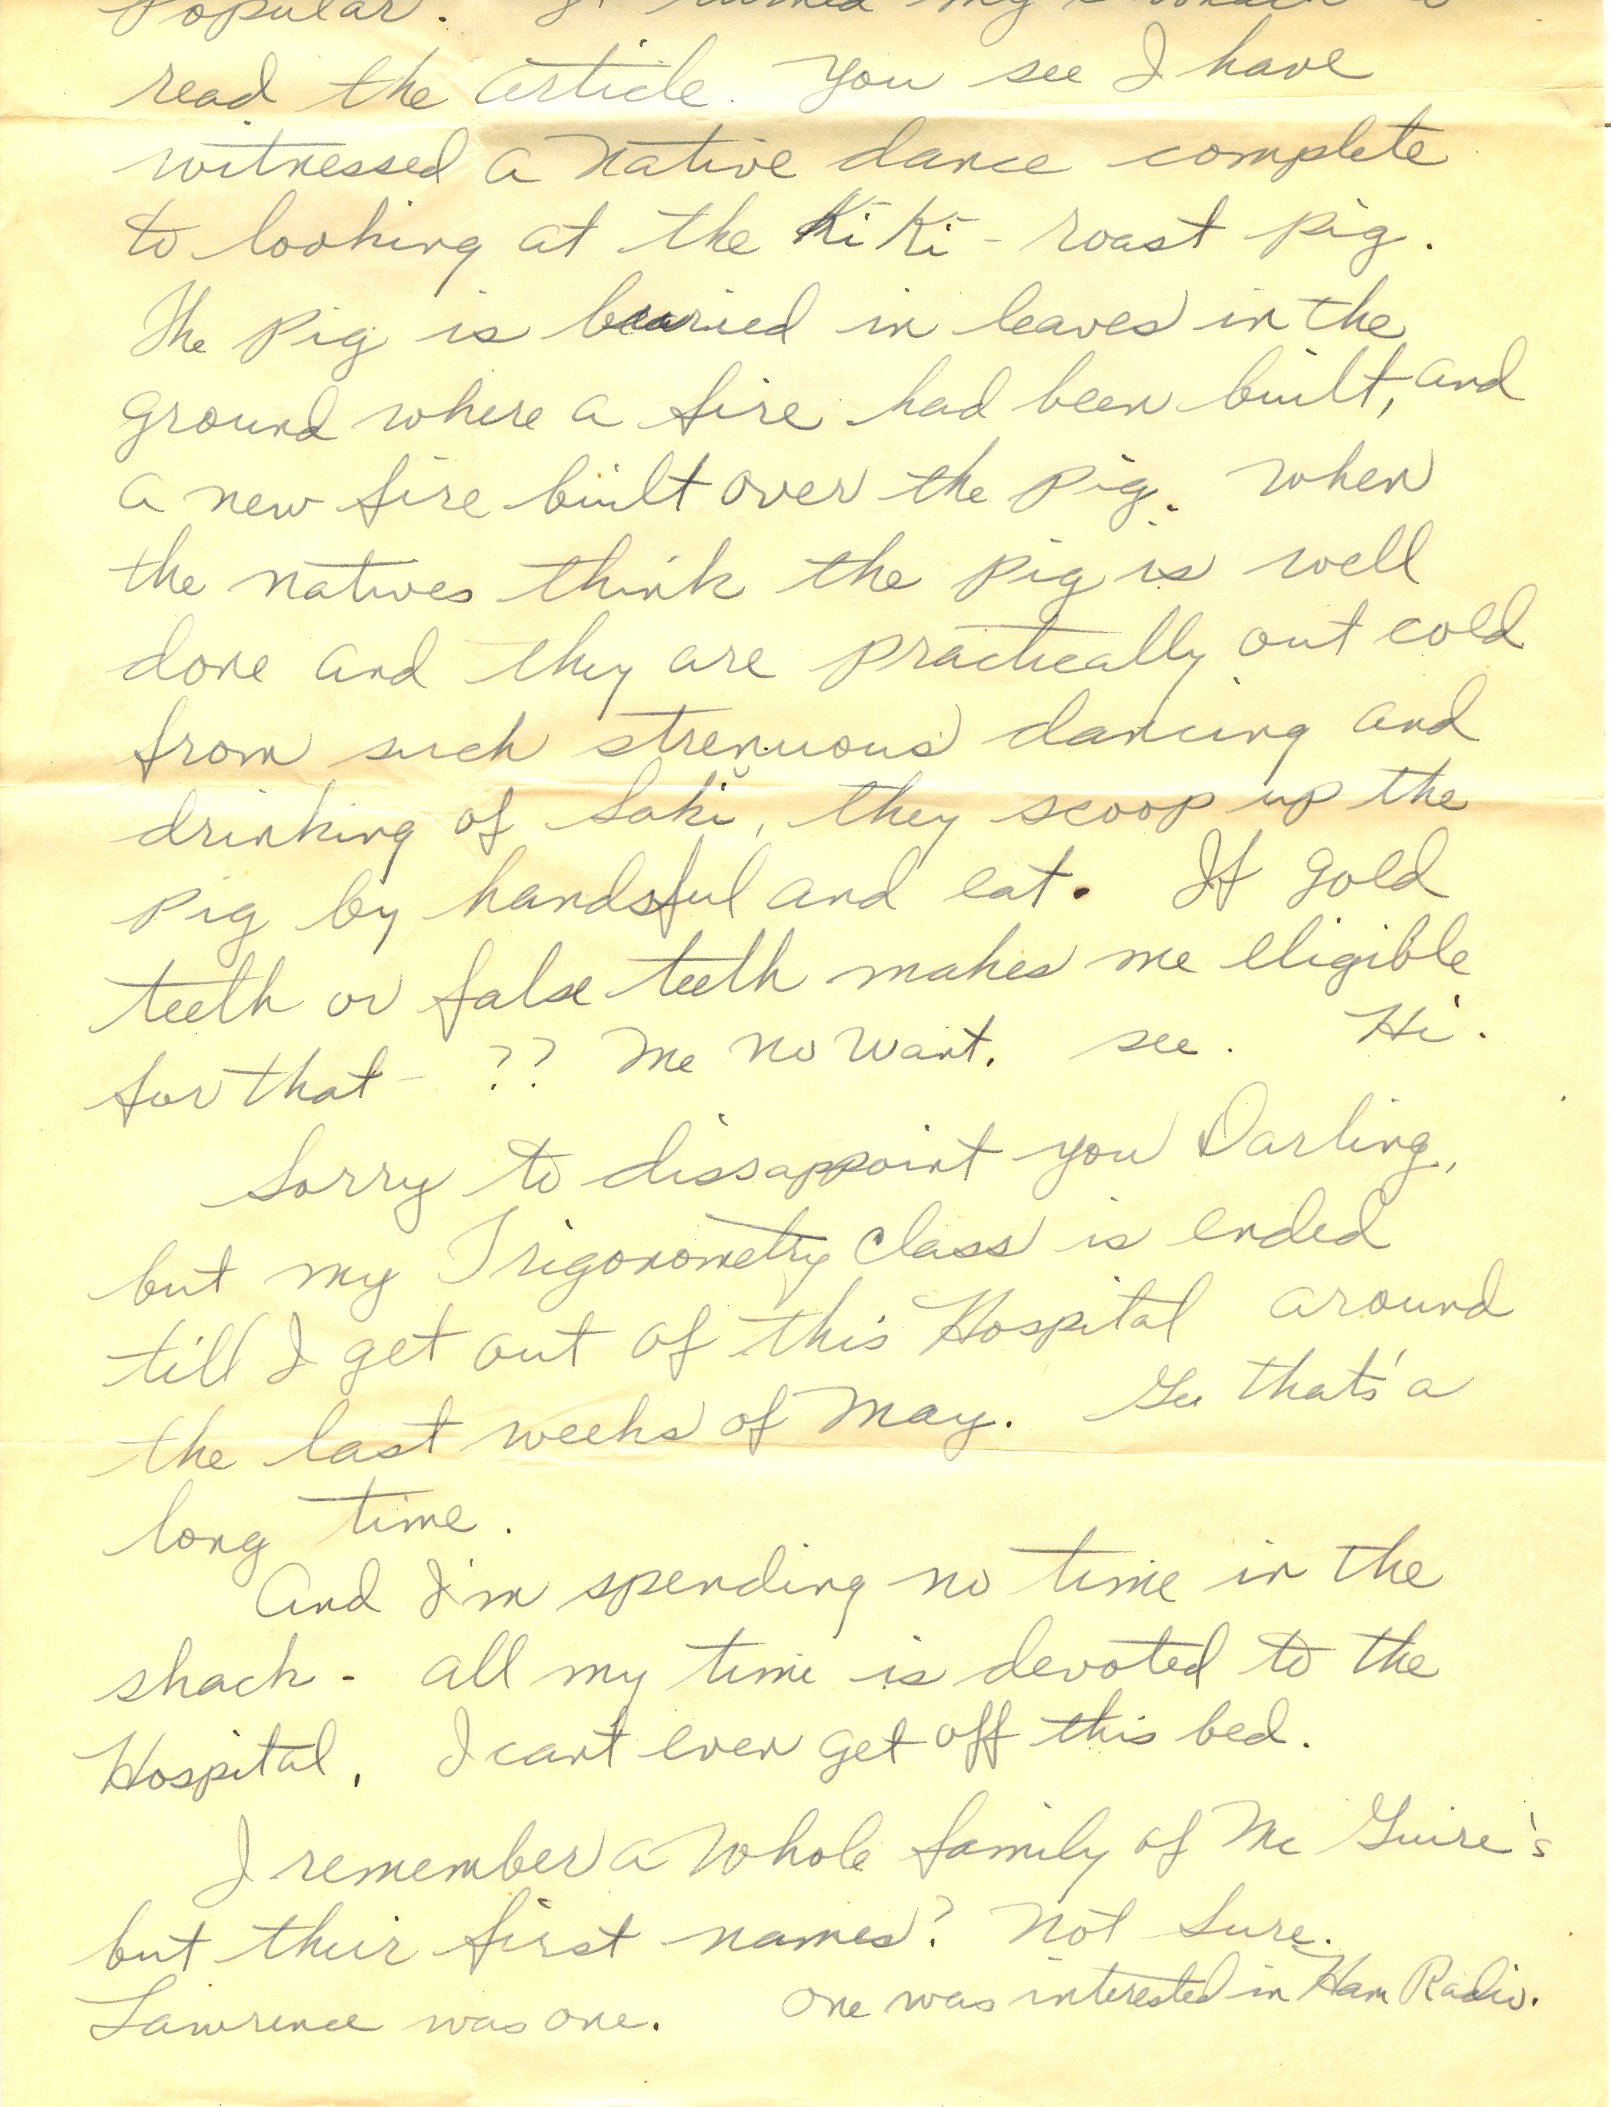 popular. It turned my stomach to
read the article. You see I have
witnessed a native dance complete
to looking at the Ki Ki - roast pig.
The pig is buried in leaves in the
ground where a fire had been built, and
a new fire built over the pig. When
the natives think the pig is well
done and they are practically out cold
from such strenuous dancing and
drinking of Saki, they scoop up the
pig by handsful and eat. If gold
teeth or false teeth makes me eligible
for that - ?? Me no want. see. Hi.
Sorry to dissappoint you Darling,
but my Trigonometry class is ended
till I get out of this Hospital around
the last weeks of May. Gee that's a
long time.
And I'm spending no time in the
shack - all my time is devoted to the
Hospital. I can't even get off this bed.
I remember a whole family of Mc Guire's
but their first names? Not sure.
Lawrence was one. One was interested in Ham Radio.